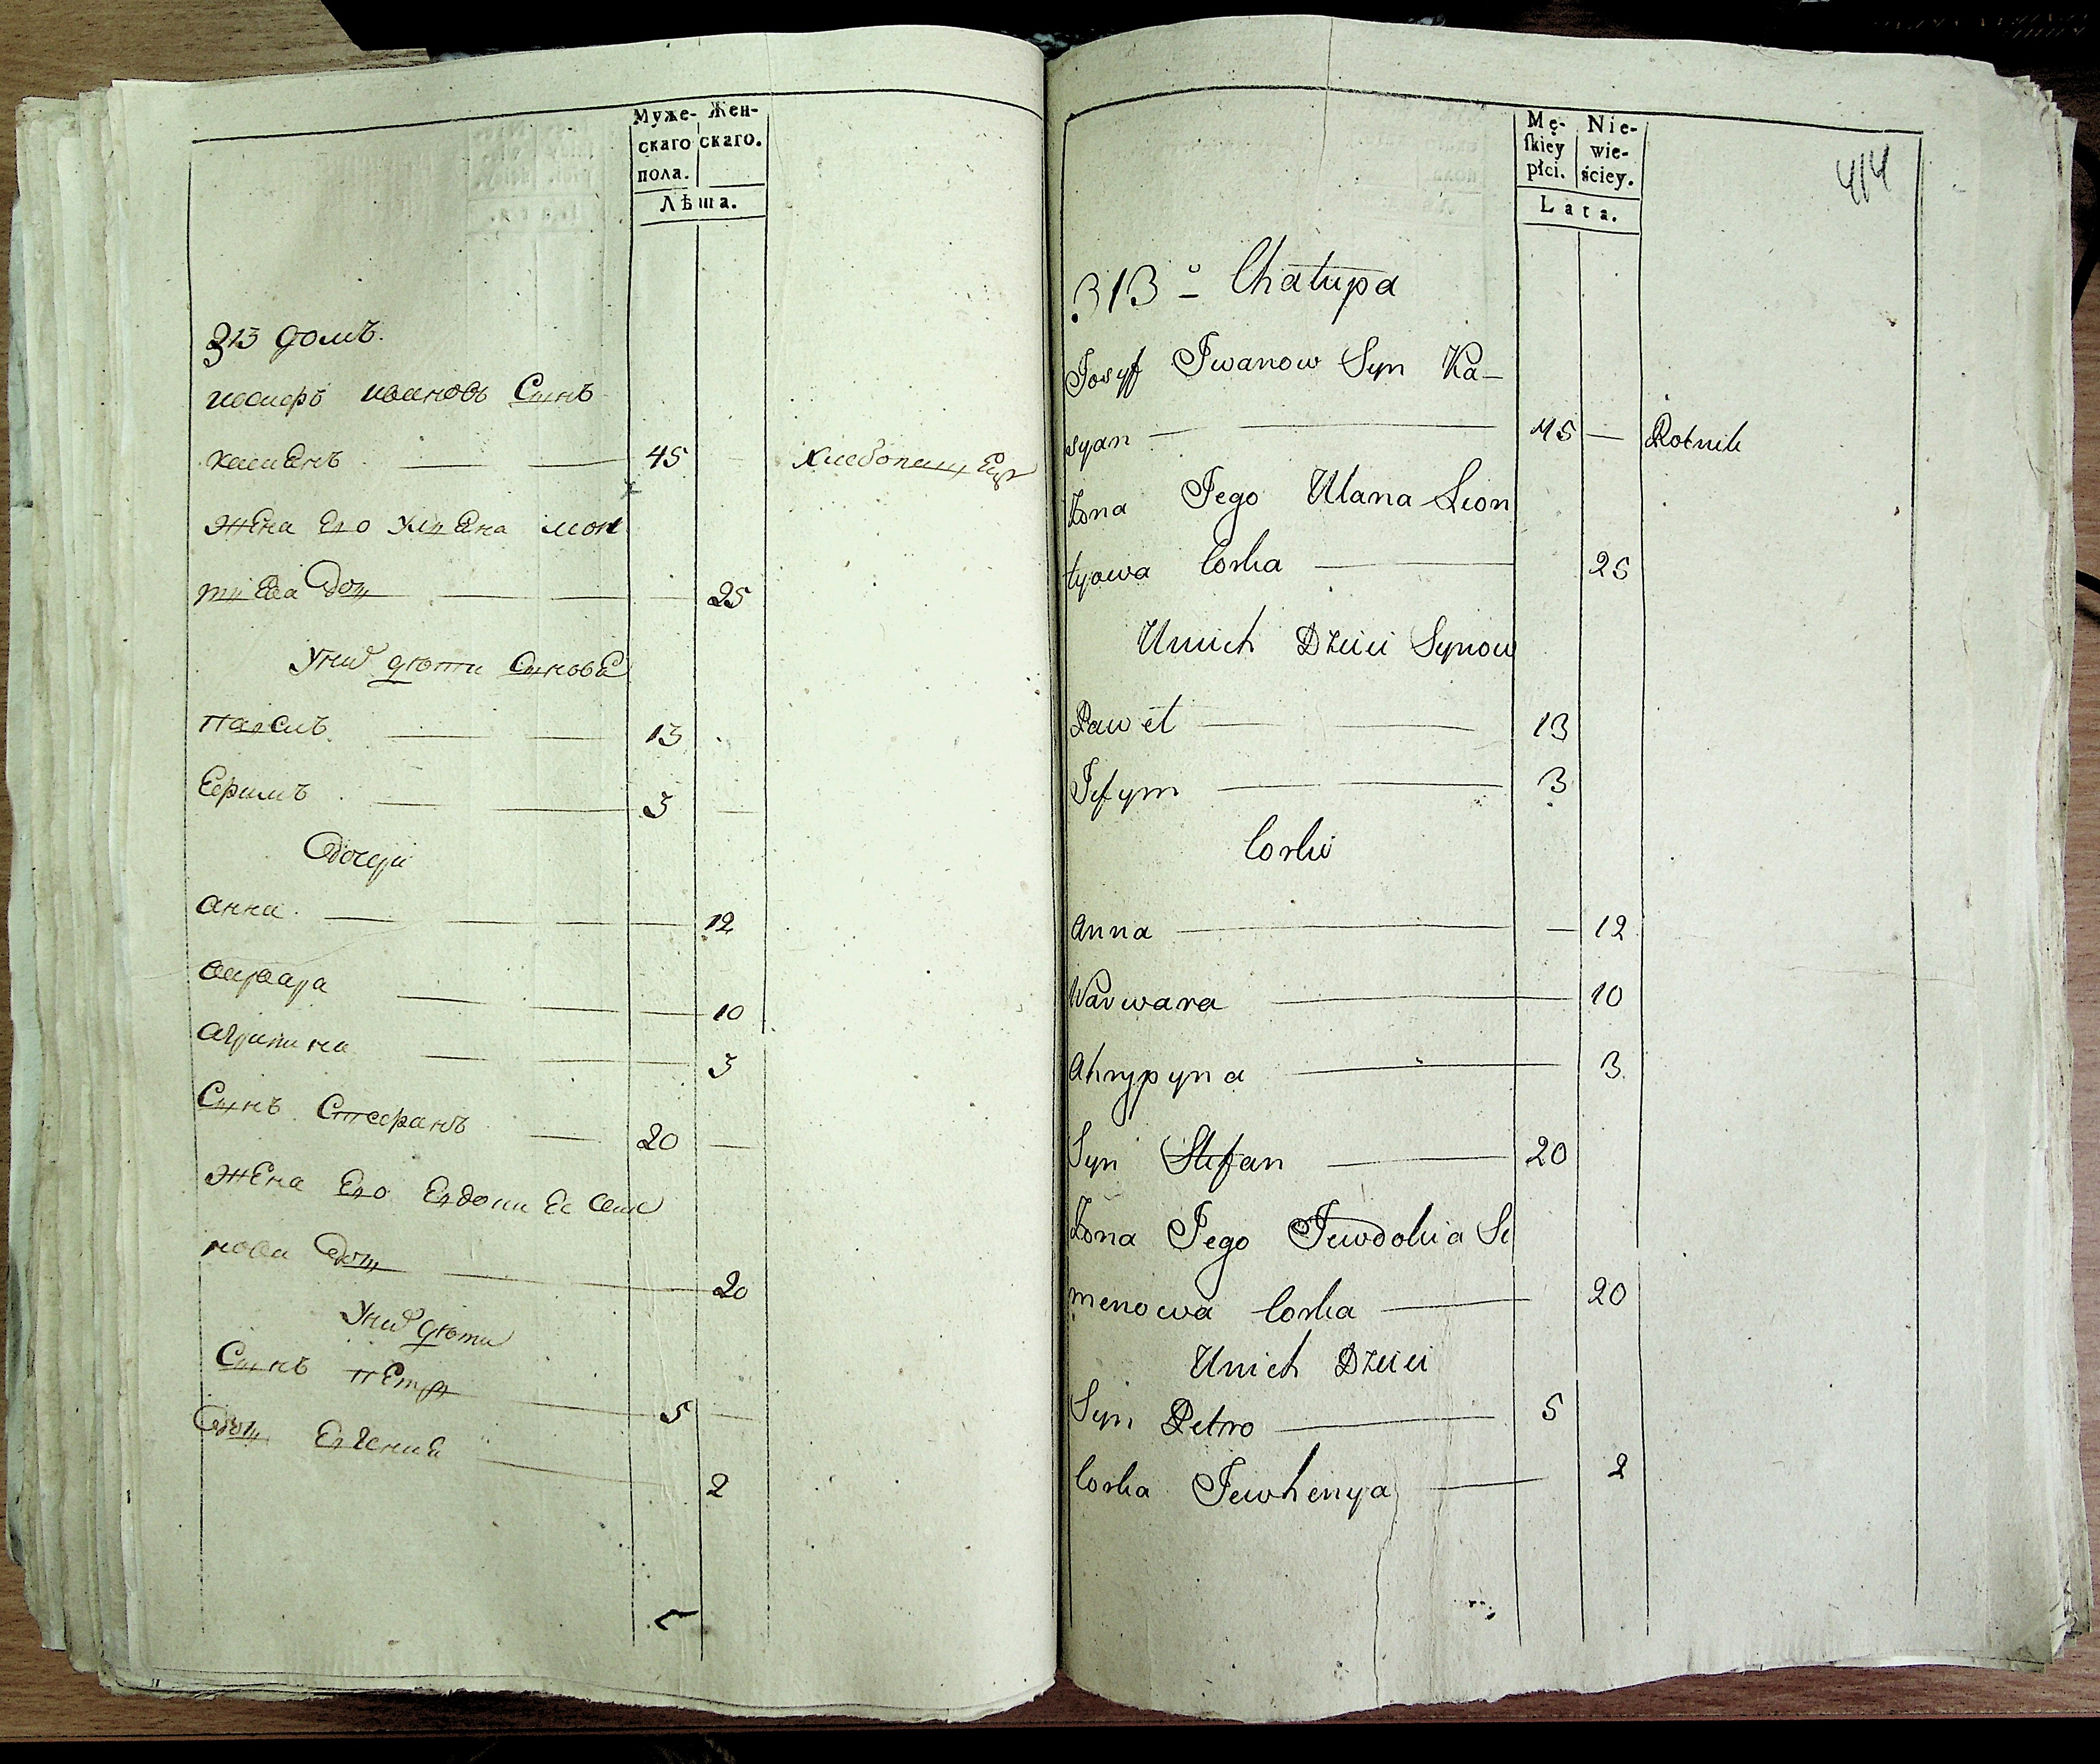 Муже- Жен-
скаго скаго.
пола.
Лѣта.
313 домъ.
иосифъ ивановъ Сынъ
касиянъ 45 хлебопашец
жена Его улияна леон
тиева дочь 25
Уних дети Синове
Павелъ 13
Ефимъ 3
дочери
анна 12
варвара 10
агрипина 3
Синъ Стефанъ 20
жена Его Евдокия Семе
нова дочь 20
Уних дети
Синъ Петр 5
дочь Евгения 2
Mę- Nie-
skiey wie-
płci. ściey.
Lata.
414
313 o Chałupa
Josyf Jwanow Syn Ka-
syan 45 Rolnik
Żona Jego Ulana Leon
tyowa Corka 25
Unich Dzieci Synow
Paweł 13
Jefym 3
Corki
Anna 12
Warwara 10
Ahrypyna 3
Syn Stefan 20
Żona Jego Jewdokia Se
menowa Corka 20
Unich Dzieci
Syn Petro 5
Corka Jewhenya 2